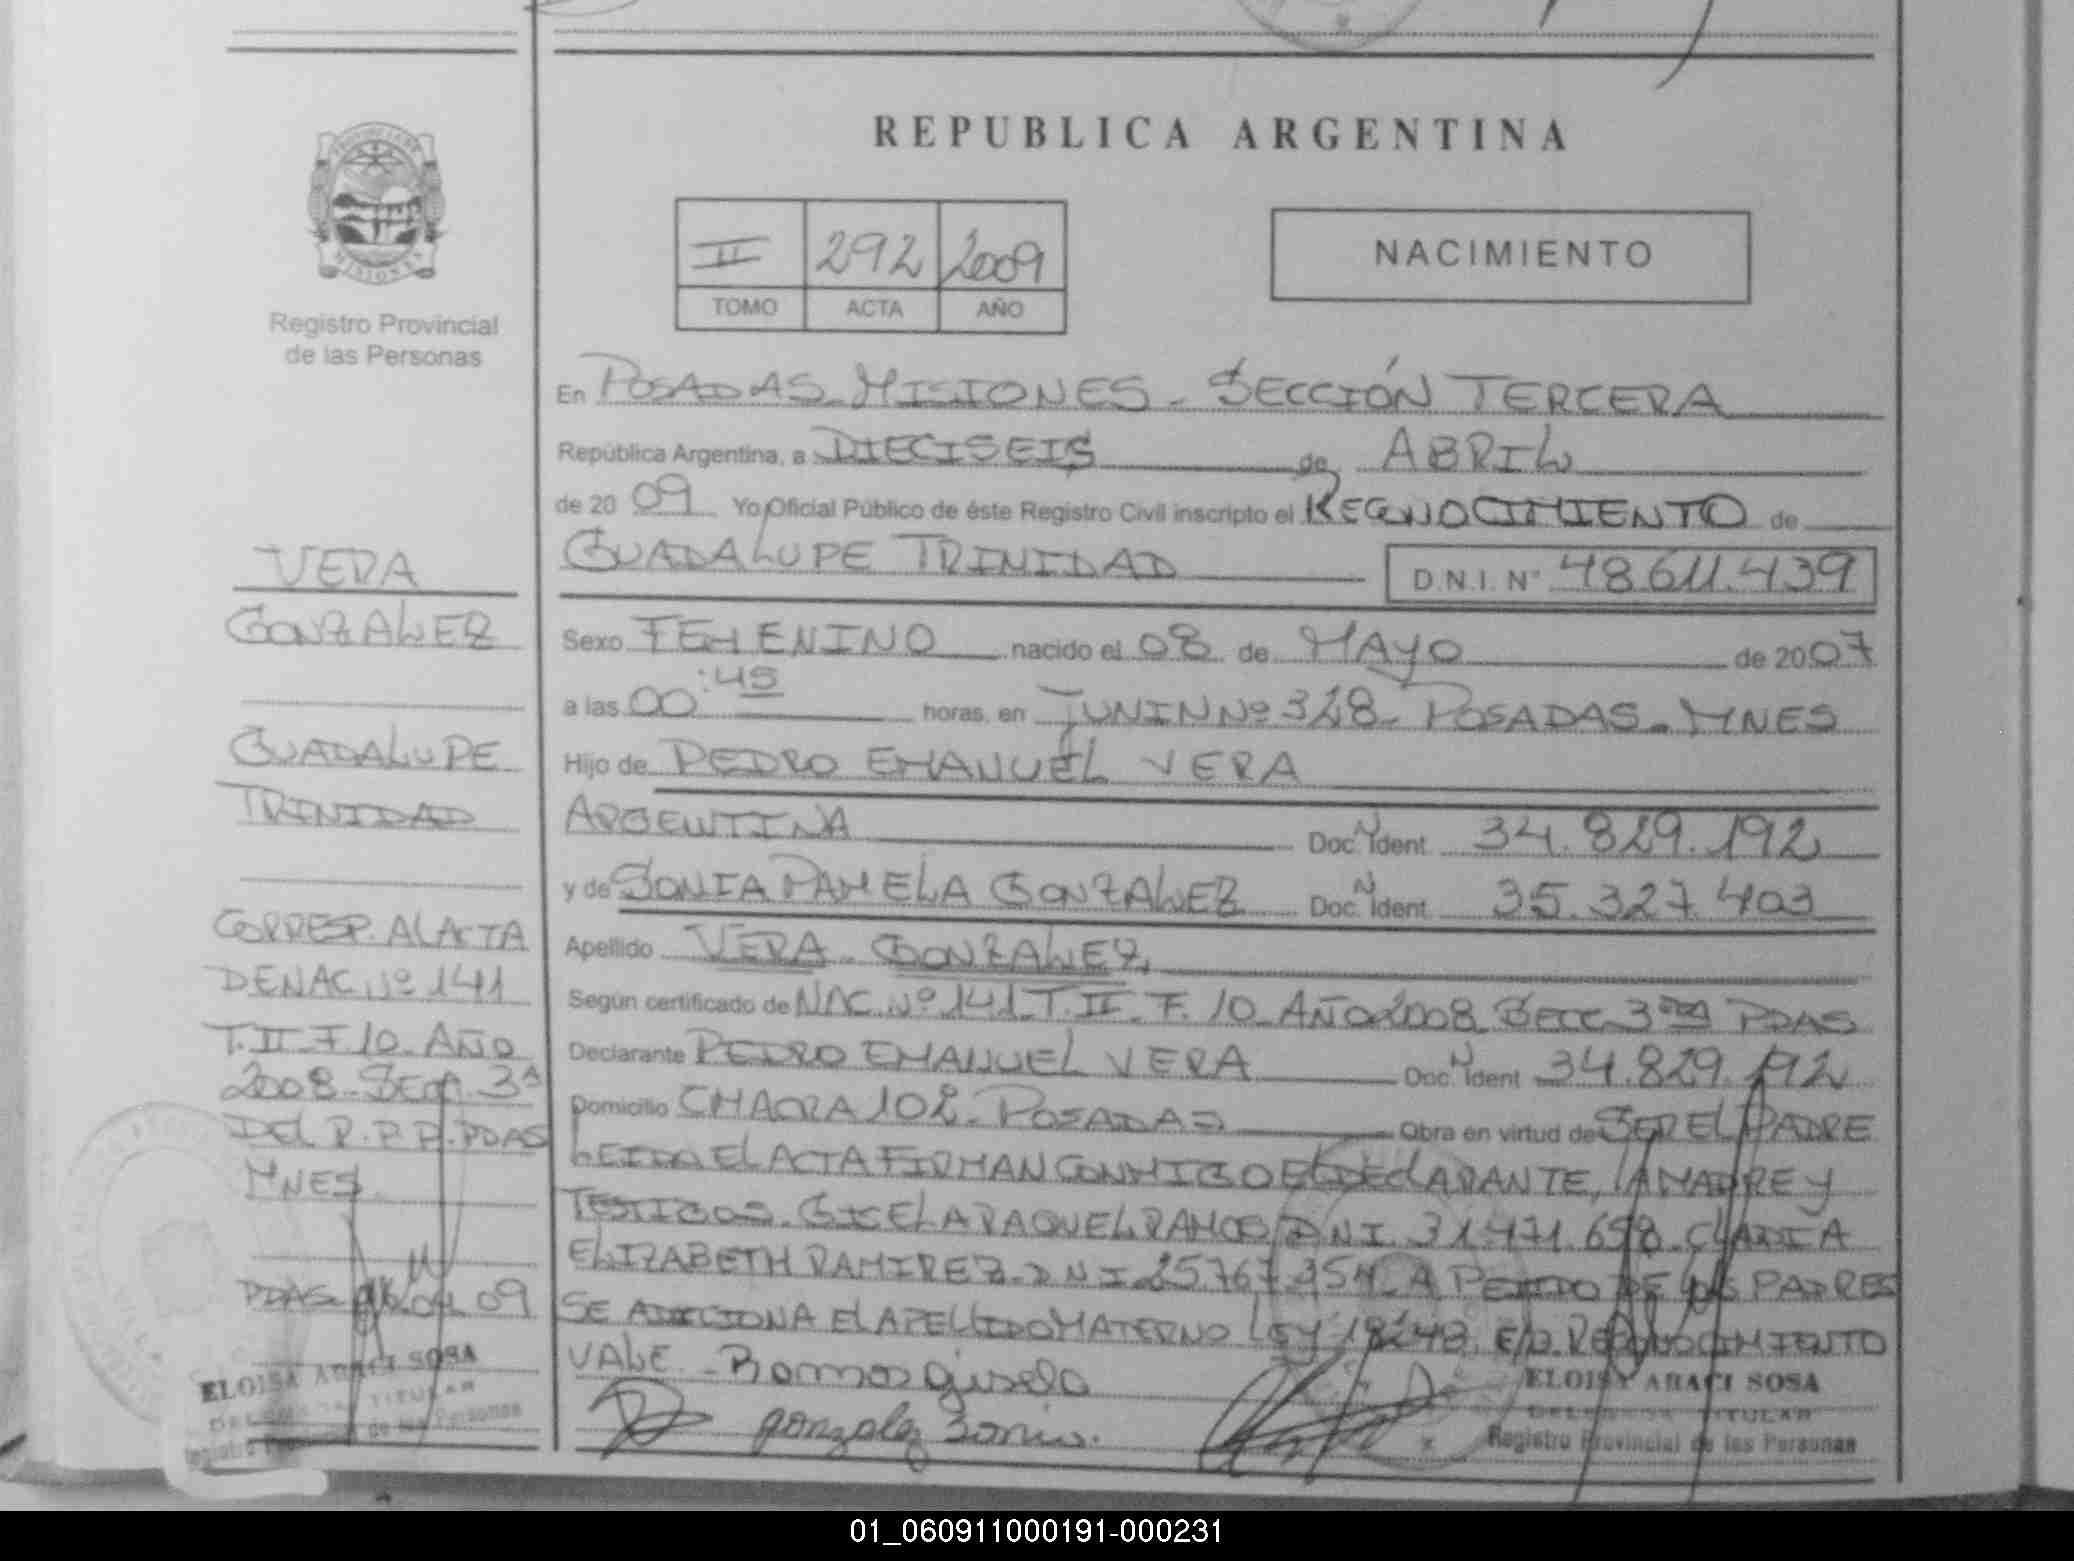 REPUBLICA ARGENTINA
II 292 2009
TOMO ACTA AÑO
NACIMIENTO
MISIONES
Registro Provincial
de las Personas
VERA
GONZALEZ
GUADALUPE
TRINIDAD
CORRESP. AL ACTA
DE NAC. Nº 141
T. II F 10 AÑO
2008 - SECC. 3ª
DEL R.P.P. PDAS
MNES.
PDAS 16.04.09
ELOISA ARACI SOSA
DELEGADA TITULAR
Registro Provincial de las Personas
En POSADAS - MISIONES - SECCIÓN TERCERA
República Argentina, a DIECISEIS de ABRIL
de 2009 Yo Oficial Público de éste Registro Civil inscripto el RECONOCIMIENTO de
GUADALUPE TRINIDAD D.N.I. Nº 48.611.439
Sexo FEMENINO nacido el 08 de MAYO de 2007
a las 00:45 horas, en JUNIN Nº 328 - POSADAS - MNES
Hijo de PEDRO EMANUEL VERA
ARGENTINA Doc. N Ident 34.829.192
y de SONIA PAMELA GONZALEZ Doc. N Ident 35.327.403
Apellido VERA - GONZALEZ
Según certificado de NAC. Nº 141 - T. II - F. 10 - AÑO 2008 - SECC. 3ra PDAS
Declarante PEDRO EMANUEL VERA Doc. N Ident 34.829.192
Domicilio CHACRA 102 - POSADAS Obra en virtud de SER EL PADRE
LEIDA EL ACTA FIRMAN CONMIGO EL DECLARANTE, LA MADRE Y
TESTIGOS - GISELA RAQUEL RAMOS DNI. 31.471.698 -
ELIZABETH RAMIREZ - DNI 25.767.954 - A PEDIDO DE LOS PADRES
SE ADICIONA EL APELLIDO MATERNO LEY 18248. E/L. RECONOCIMIENTO
VALE. - Ramos Gisela
gonzalez Sonia.
ELOISA ARACI SOSA
DELEGADA TITULAR
Registro Provincial de las Personas
01_060911000191-000231